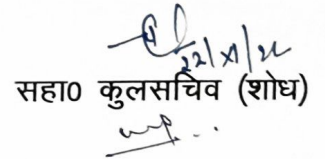 22/XI/22
सहा0 कुलसचिव (शोध)